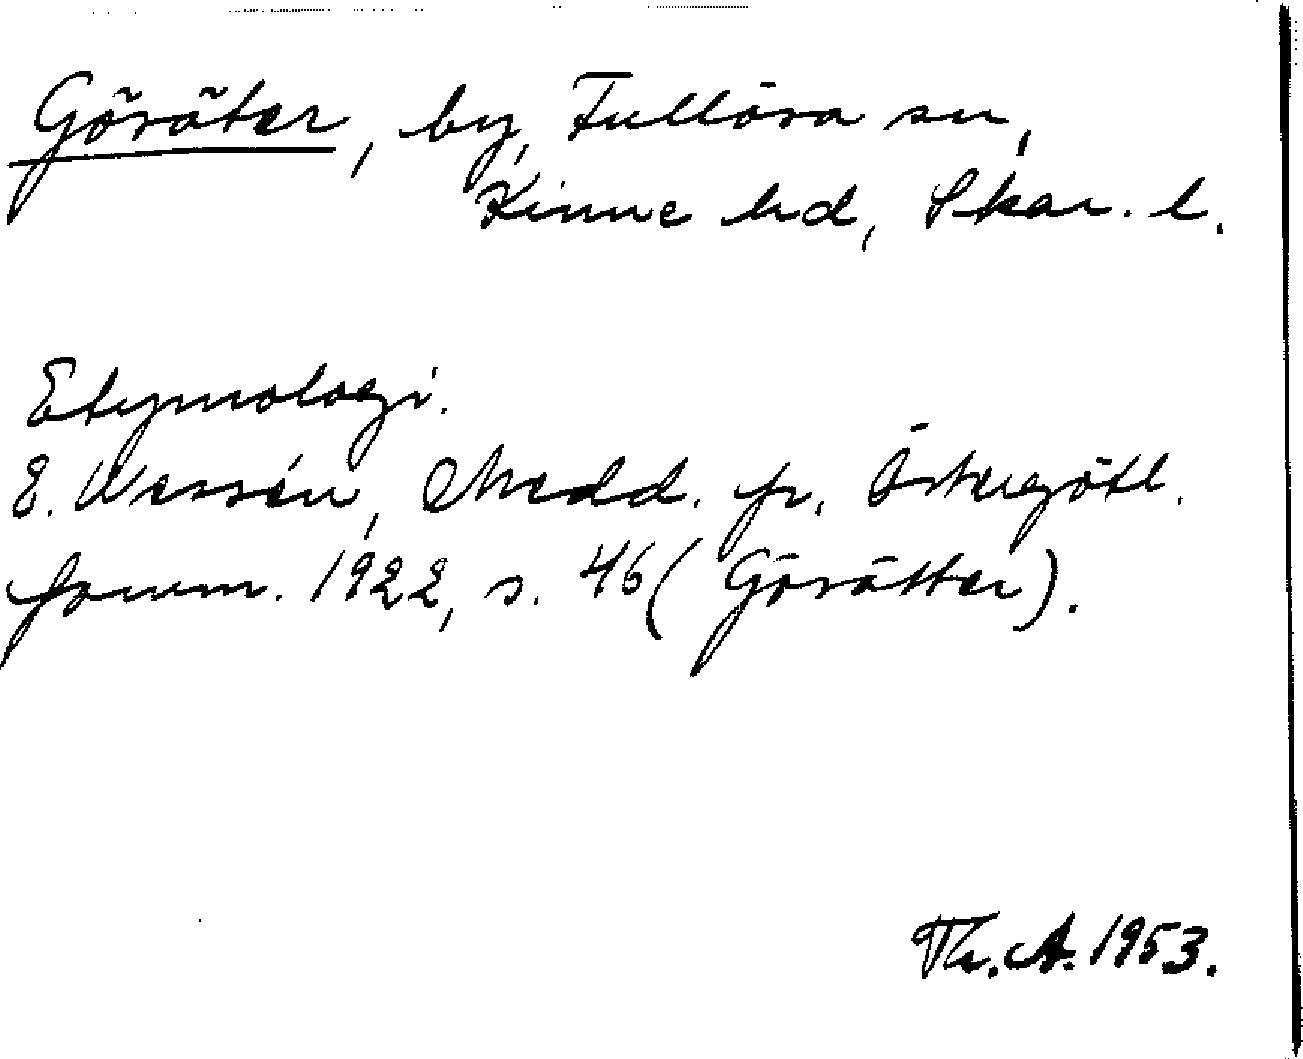 Göräter, by, Fullösa sn,
Kinne hd, Skar. l.
Etymologi.
E. Wessén, Medd. fr. Östergötl.
fornm. 1922, s. 46 (Görätter).
Th. A. 1953.